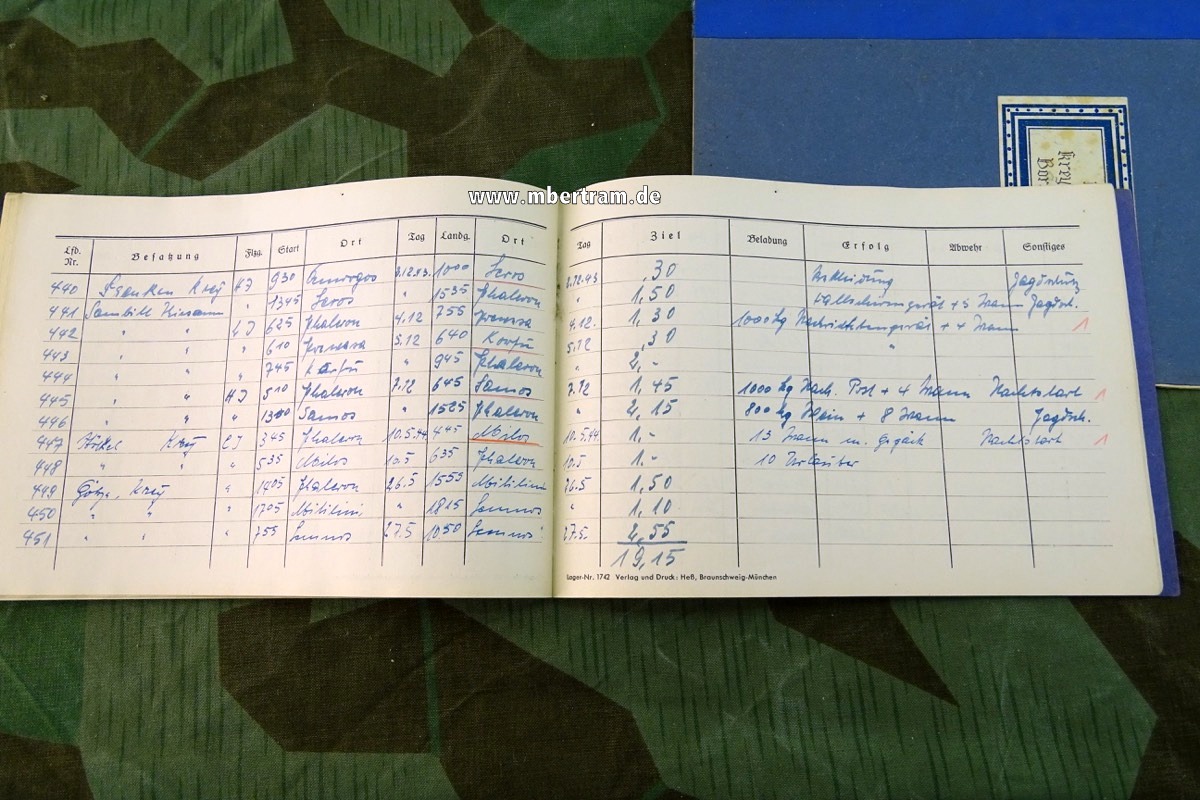 Krey
www.mbertram.de
Lfd. Nr. Besatzung Flzg. Start Ort Tag Landg. Ort Tag Ziel Beladung Erfolg Abwehr Sonstiges
440 Krey HJ 930 Amorgos 2.12.43 1000 Leros 2.12.43 ,30
441 " 1345 Leros " 1535 Phaleron " 1,50 + 5 Mann Jagdsch.
442 " " 625 Phaleron 4.12 755 4.12. 1,30 1000 kg Nachrichtengerät + 4 Mann 1
443 " " " 610 5.12 640 Korfu 5.12 ,30 "
444 " " " 745 Korfu " 945 Phaleron " 2,-
445 " " HJ 510 Phaleron 7.12 645 Samos 7.12 1,45 1000 kg Nach. Post + 4 Mann Nachtstart 1
446 " " " 1300 Samos " 1525 Phaleron " 2,15 800 kg Wein + 8 Mann Jagdsch.
447 Krey CJ 345 Phaleron 10.5.44 445 Milos 10.5.44 1,- 13 Mann m. Gepäck Nachtstart 1
448 " " " 535 Milos 10.5 635 Phaleron 10.5 1,- 10 Urlauber
449 Götze, Krey " 1405 Phaleron 26.5 1555 Mitilini 26.5 1,50
450 " " " 1705 Mitilini " 1815 Lemnos " 1,10
451 " " " 755 Lemnos 27.5 1050 27.5. 2,55
19,15
Lager-Nr. 1742 Verlag und Druck: Heß, Braunschweig-München